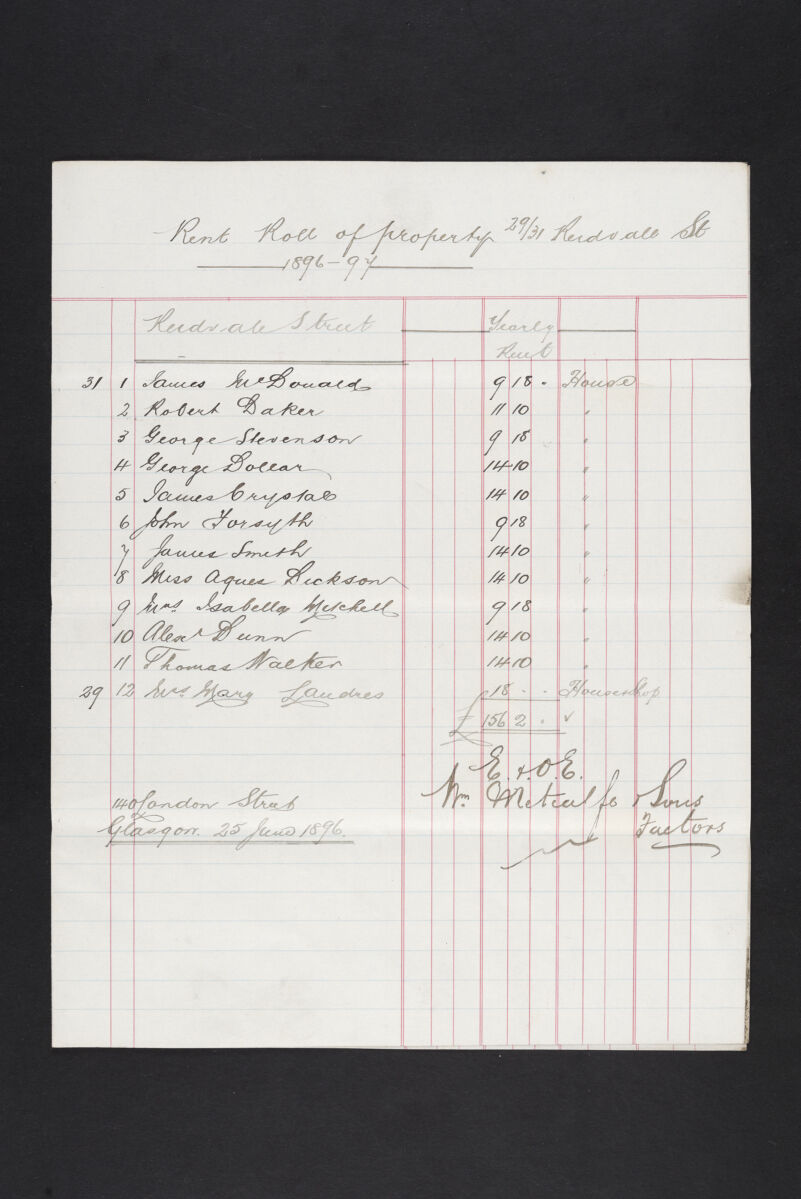 Rent Roll of property 29/31 Reidvale St
1896-97
Reidvale Street Yearly
Rent
31 1 James McDonald 9 18 - House
2 Robert Baker 11 10 "
3 George Stevenson 9 18 "
4 George Dollar 14 10 "
5 James Crystal 14 10 "
6 John Forsyth 9 18 "
7 James Smith 14 10 "
8 Miss Agnes Dickson 14 10 "
9 Mrs Isabella Mitchell 9 18 "
10 Alexr Dunn 14 10 "
11 Thomas Walker 14 10 "
29 12 Mrs Mary Landres 18 - - House & Shop
£ 156 2 - ✓
E. & O. E.
140 London Street Wm Metcalfe & Sons
Glasgow. 25 June 1896. Factors